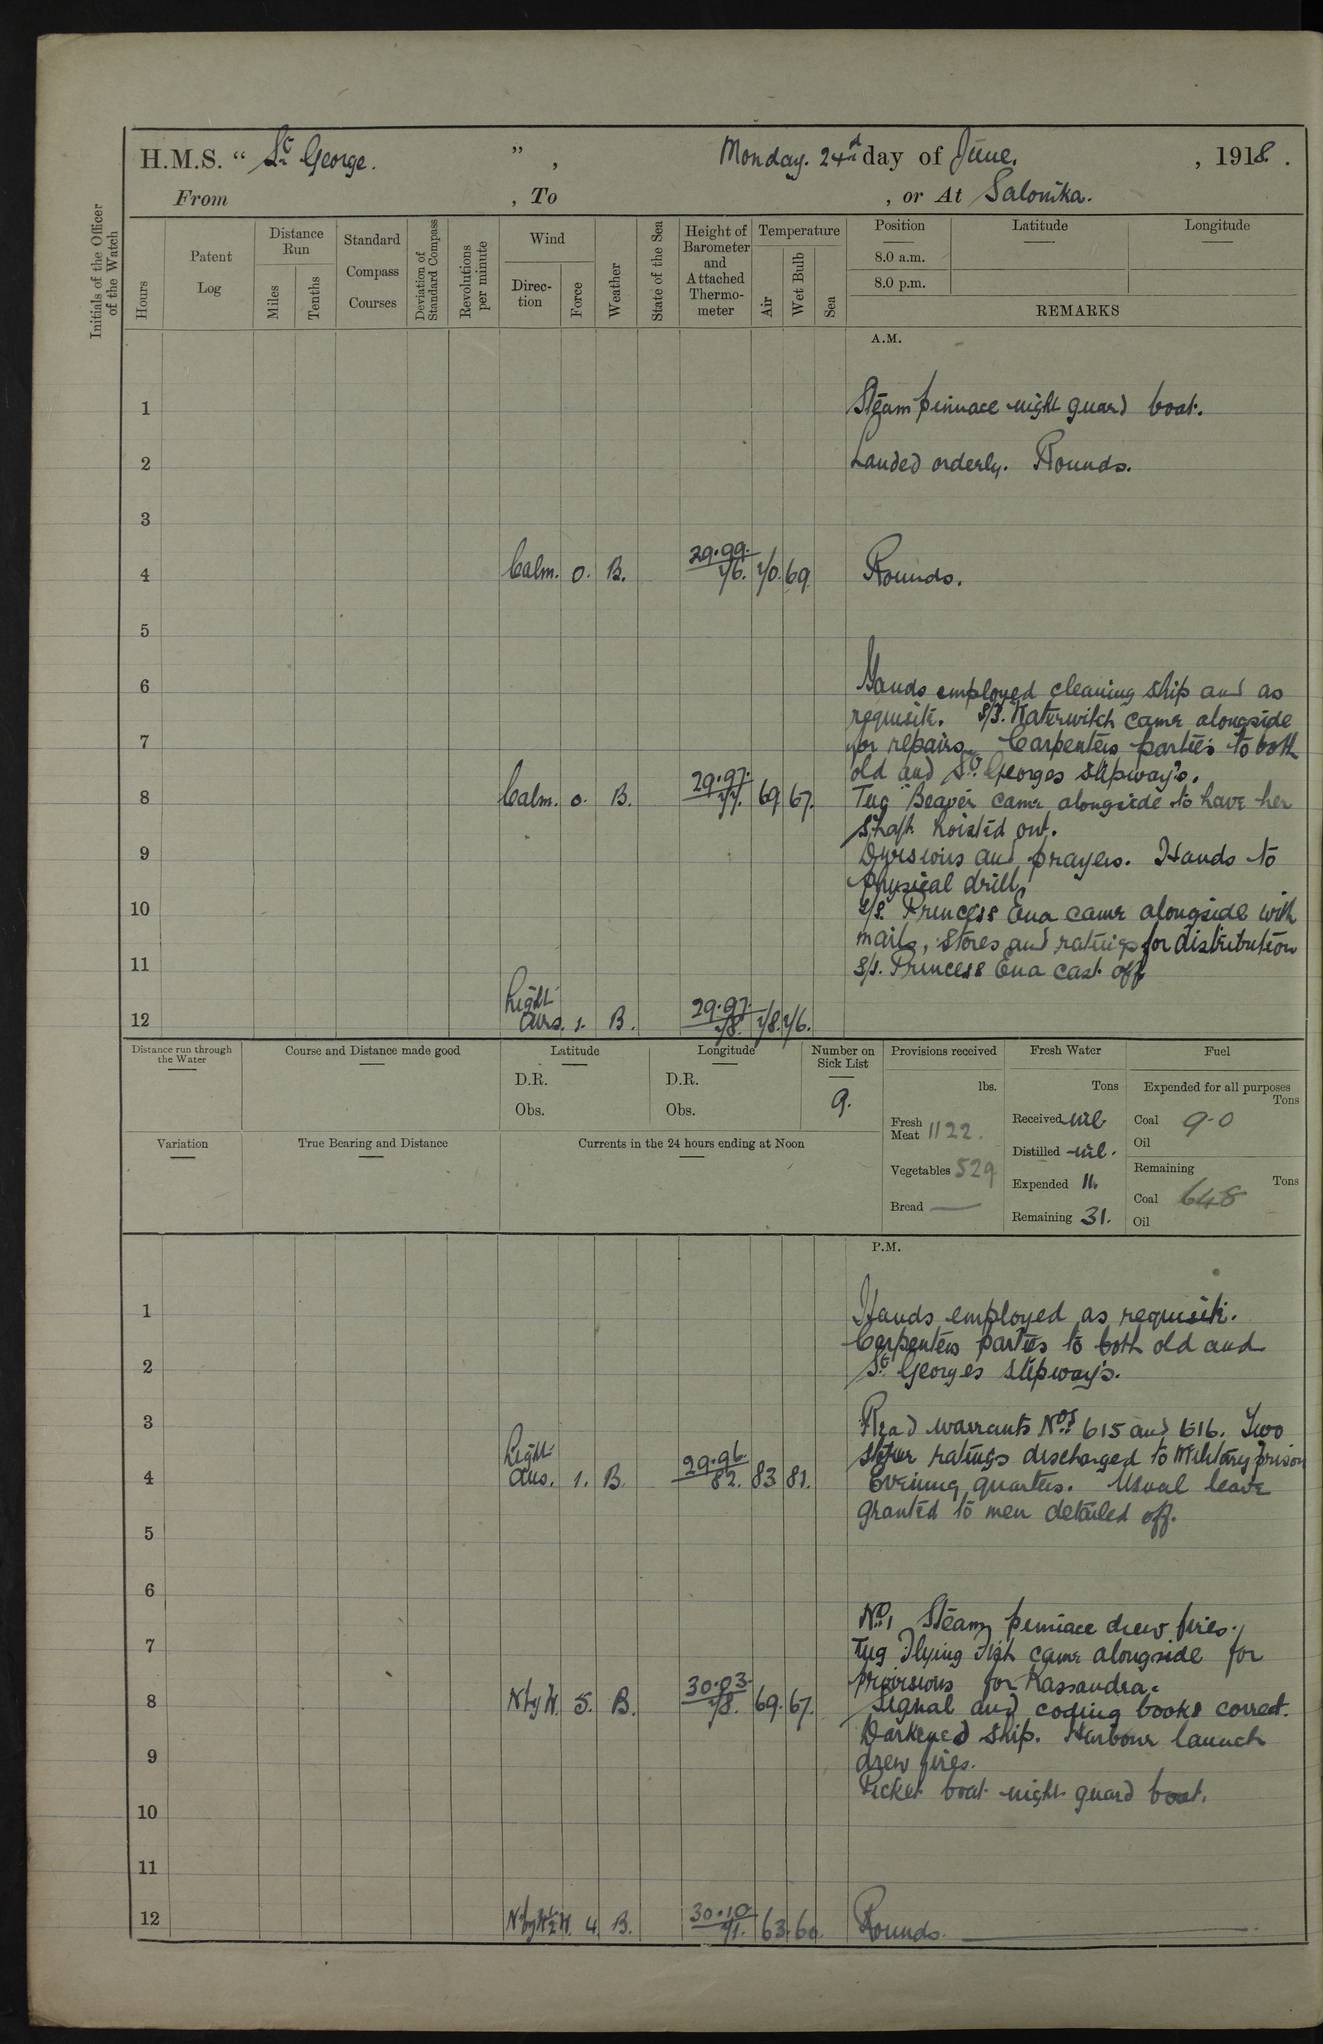 H.M.S. " St George. " , Monday. 24d day of June. , 1918.
From , To , or At Salonika.
Initials of the Officer of the Watch
Hours
Patent Log
Distance Run
Miles
Tenths
Standard Compass Courses
Deviation of Standard Compass
Revolutions per minute
Wind
Direction
Force
Weather
State of the Sea
Height of Barometer and Attached Thermometer
Temperature
Air
Wet Bulb
Sea
Position Latitude Longitude
8.0 a.m.
8.0 p.m.
REMARKS
A.M.
1 Steam pinnace night guard boat.
2 Landed orderly. Rounds.
3
4 Calm. 0. B. 29.99. 76. 70. 69 Rounds.
5
6 Hands employed cleaning ship and as
requisite. S/S. Waterwitch came alongside
7 for repairs. Carpenters parties to both
old and St. Georges slipway's.
8 Calm. 0. B. 29.97. 77. 69 67. Tug Beaver came alongside to have her
shaft hoisted out.
9 Divisions and prayers. Hands to
physical drill.
10 S/S. Princess Ena came alongside with
mails, stores and ratings for distribution
11 S/S. Princess Ena cast off
12 Light airs. 1. B. 29.97. 78. 78. 76.
Distance run through the Water
Course and Distance made good
Latitude
D.R.
Obs.
Longitude
D.R.
Obs.
Number on Sick List
9.
Provisions received
lbs.
Fresh Meat 1122.
Vegetables 529
Bread —
Fresh Water
Tons
Received nil.
Distilled nil.
Expended 11.
Remaining 31.
Fuel
Expended for all purposes
Tons
Coal 9.0
Oil
Remaining
Tons
Coal 648
Oil
Variation
True Bearing and Distance
Currents in the 24 hours ending at Noon
P.M.
1 Hands employed as requisite.
Carpenters parties to both old and
2 St Georges slipway's.
3 Read warrants Nos 615 and 616. Two
ratings discharged to Military prison
4 Light airs. 1. B. 29.96. 82. 83 81. Evening quarters. Usual leave
granted to men detailed off.
5
6
No. 1 Steam pinnace drew fires.
7 Tug Flying Fish came alongside for
provisions for Kassandra.
8 N by W. 5. B. 30.03. 78. 69. 67. Signal and coding books correct.
Darkened ship. Harbour launch
9 drew fires.
Picket boat night guard boat.
10
11
12 N by W ½ W. 4. B. 30.10. 71. 63. 60. Rounds.